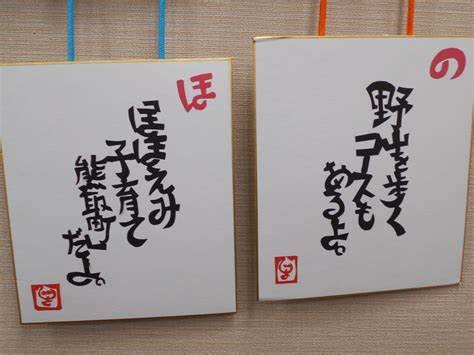 の
野山を歩く
コースも
あるよ。
ほ
ほほえみ
子育て
熊取町だよ。